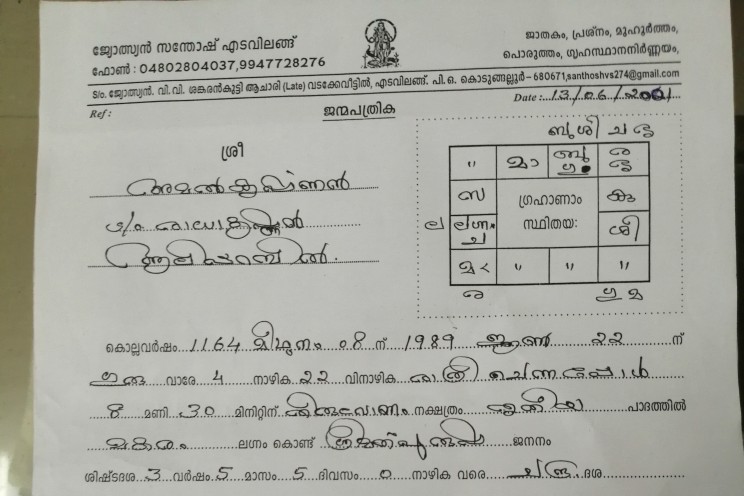 ജ്യോത്സ്യൻ സന്തോഷ് എടവിലങ്ങ്
ഫോൺ : 04802804037,9947728276
ജാതകം, പ്രശ്നം, മുഹൂർത്തം,
പൊരുത്തം, ഗൃഹസ്ഥാനനിർണ്ണയം,
S/o. ജ്യോത്സ്യൻ. വി.വി. ശങ്കരൻകുട്ടി ആചാരി (Late) വടക്കേവീട്ടിൽ, എടവിലങ്ങ്. പി.ഒ. കൊടുങ്ങല്ലൂർ - 680671,santhoshvs274@gmail.com
Ref : Date : 13/06/2021
ജന്മപത്രിക
ശ്രീ
" മാ ബു
സ ഗ്രഹാണാം കു
ല ലഗ്നം സ്ഥിതയഃ ശി
ച
" " "
കൊല്ലവർഷം 1164 മിഥുനം 08 ന് 1989 ജൂൺ 22 ന്
വാരേ 4 നാഴിക 22 വിനാഴിക രാത്രി ചെന്നപ്പോൾ
8 മണി 30 മിനിറ്റിന് തിരുവോണം നക്ഷത്രം പാദത്തിൽ
മകരം ലഗ്നം കൊണ്ട് ജനനം
ശിഷ്ടദശ 3 വർഷം 5 മാസം 5 ദിവസം 0 നാഴിക വരെ ചന്ദ്ര ദശ